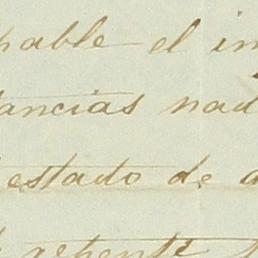 pable el in
tancias nad
estado de a
repente